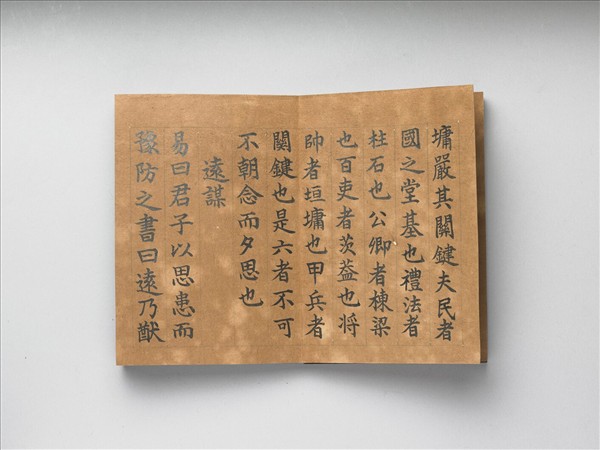 墉嚴其關鍵夫民者
國之堂基也禮法者
柱石也公卿者棟梁
也百吏者茨蓋也将
帥者垣墉也甲兵者
關鍵也是六者不可
不朝念而夕思也
遠謀
易曰君子以思患而
豫防之書曰遠乃猷